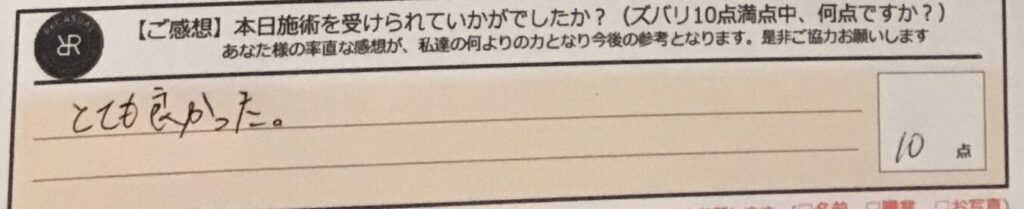 【ご感想】本日施術を受けられていかがでしたか？（ズバリ10点満点中、何点ですか？）
あなた様の率直な感想が、私達の何よりの力となり今後の参考となります。是非ご協力お願いします
とても良かった。
10 点
（□名前 □職業 □お写真）